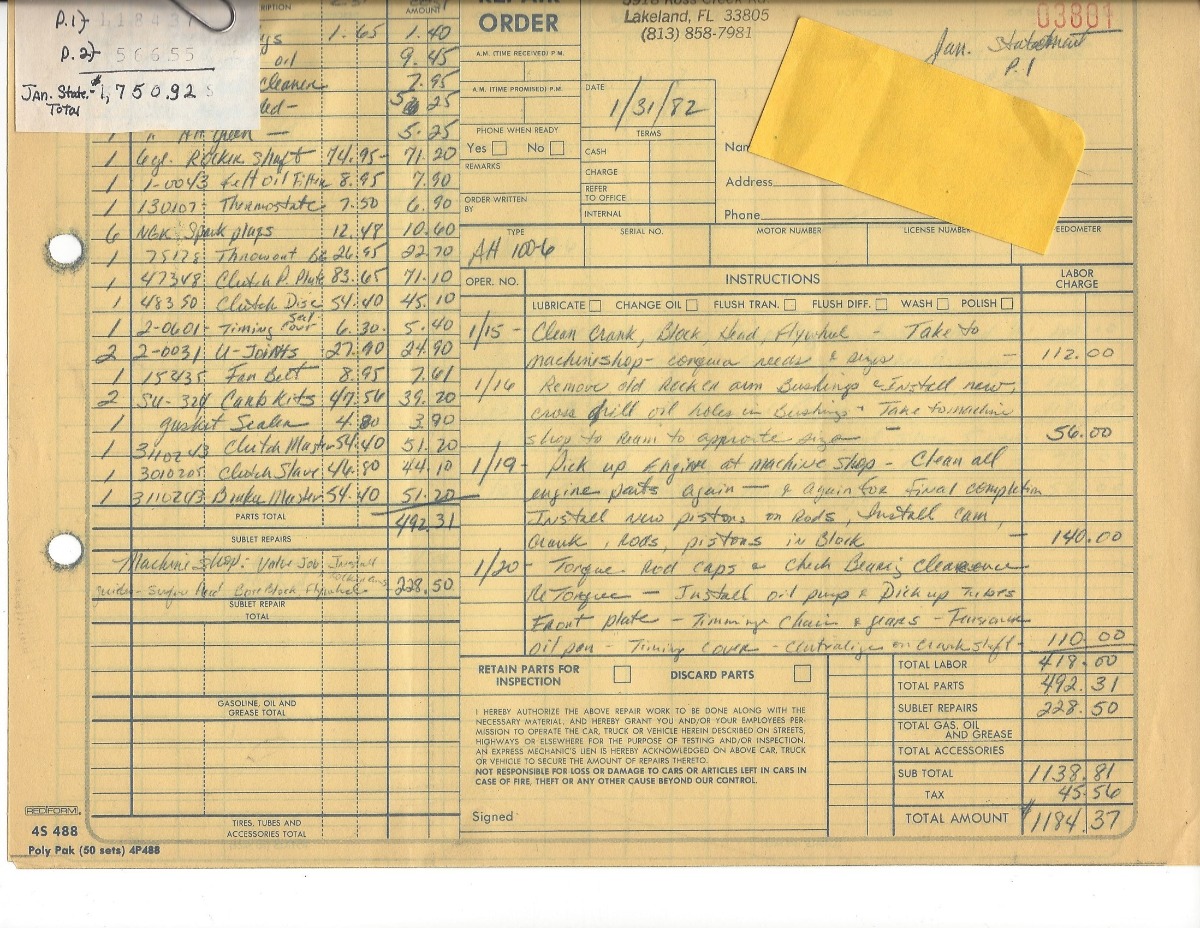 P.1) 1,184.37
P.2) 566.55
Jan. State. - $1,750.92
Total
AMOUNT
1.65 1.40
oil 9.45
cleaner 7.95
5.25
1 " AH green — 5.25
1 6cyl. Rocker shaft 74.95- 71.20
1 1-0043 Felt oil Filter 8.95 7.90
1 130107- Thermostate 7.50 6.90
6 NGK Spark plugs 12.48 10.60
1 75178 Throwout be 26.95 22.70
1 47348 Clutch P. Plate 83.65 71.10
1 48350 Clutch Disc 54.40 45.10
1 2-0601- Timing Cover Seal 6.30. 5.40
2 2-0031 U-Joints 27.90 24.90
1 152435 Fan Belt 8.95 7.61
2 SU-324 Carb Kits 47.56 39.20
1 gasket Sealer 4.80 3.90
1 3110243 Clutch Master 54.40 51.20
1 3010205 Clutch Slave 46.80 44.10
1 3110243 Brake Master 54.40 51.20
PARTS TOTAL 492.31
SUBLET REPAIRS
Machine shop: Valve Job, Install
guides- Surface Head Bore Block Flywheel 228.50
SUBLET REPAIR
TOTAL
GASOLINE, OIL AND
GREASE TOTAL
TIRES, TUBES AND
ACCESSORIES TOTAL
REDIFORM.
4S 488
Poly Pak (50 sets) 4P488
REPAIR
ORDER
Lakeland, FL 33805
(813) 858-7981
03801
Jan. Statement
P.1
A.M. (TIME RECEIVED) P.M.
A.M. (TIME PROMISED) P.M.
PHONE WHEN READY
Yes No
REMARKS
ORDER WRITTEN
BY
DATE
1/31/82
TERMS
CASH
CHARGE
REFER
TO OFFICE
INTERNAL
Nam
Address
Phone
TYPE SERIAL NO. MOTOR NUMBER LICENSE NUMBER EEDOMETER
AH 100-6
OPER. NO. INSTRUCTIONS LABOR
CHARGE
LUBRICATE CHANGE OIL FLUSH TRAN. FLUSH DIFF. WASH POLISH
1/15 - Clean Crank, Block Head, Flywheel - Take to
machineshop - needs & sizes — 112.00
1/16 Remove old Rocker arm Bushings & Install new,
cross drill oil holes in Bushings - Take to machine
shop to Ream to size — 56.00
1/19 - Pick up Engine at machine shop - Clean all
engine parts again — & again for final completion
Install new pistons on Rods, Install Cam,
Crank, Rods, pistons in Block — 140.00
1/20 - Torque Rod caps & Check Bearing Clearence
ReTorque — Install oil pump & Pick up Tubes
Front plate - Timming Chain & gears - Tensioner
oil pan - Timing cover - Centralize on Crankshaft - 110.00
RETAIN PARTS FOR
INSPECTION
DISCARD PARTS
I HEREBY AUTHORIZE THE ABOVE REPAIR WORK TO BE DONE ALONG WITH THE
NECESSARY MATERIAL, AND HEREBY GRANT YOU AND/OR YOUR EMPLOYEES PER-
MISSION TO OPERATE THE CAR, TRUCK OR VEHICLE HEREIN DESCRIBED ON STREETS,
HIGHWAYS OR ELSEWHERE FOR THE PURPOSE OF TESTING AND/OR INSPECTION.
AN EXPRESS MECHANIC'S LIEN IS HEREBY ACKNOWLEDGED ON ABOVE CAR, TRUCK
OR VEHICLE TO SECURE THE AMOUNT OF REPAIRS THERETO.
NOT RESPONSIBLE FOR LOSS OR DAMAGE TO CARS OR ARTICLES LEFT IN CARS IN
CASE OF FIRE, THEFT OR ANY OTHER CAUSE BEYOND OUR CONTROL.
Signed
TOTAL LABOR 418.00
TOTAL PARTS 492.31
SUBLET REPAIRS 228.50
TOTAL GAS, OIL
AND GREASE
TOTAL ACCESSORIES
SUB TOTAL 1138.81
TAX 45.56
TOTAL AMOUNT $1184.37